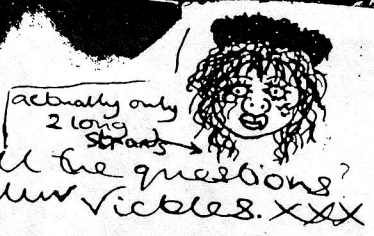 actually only
2 long
strands
the questions?
luv Vickles. xxx